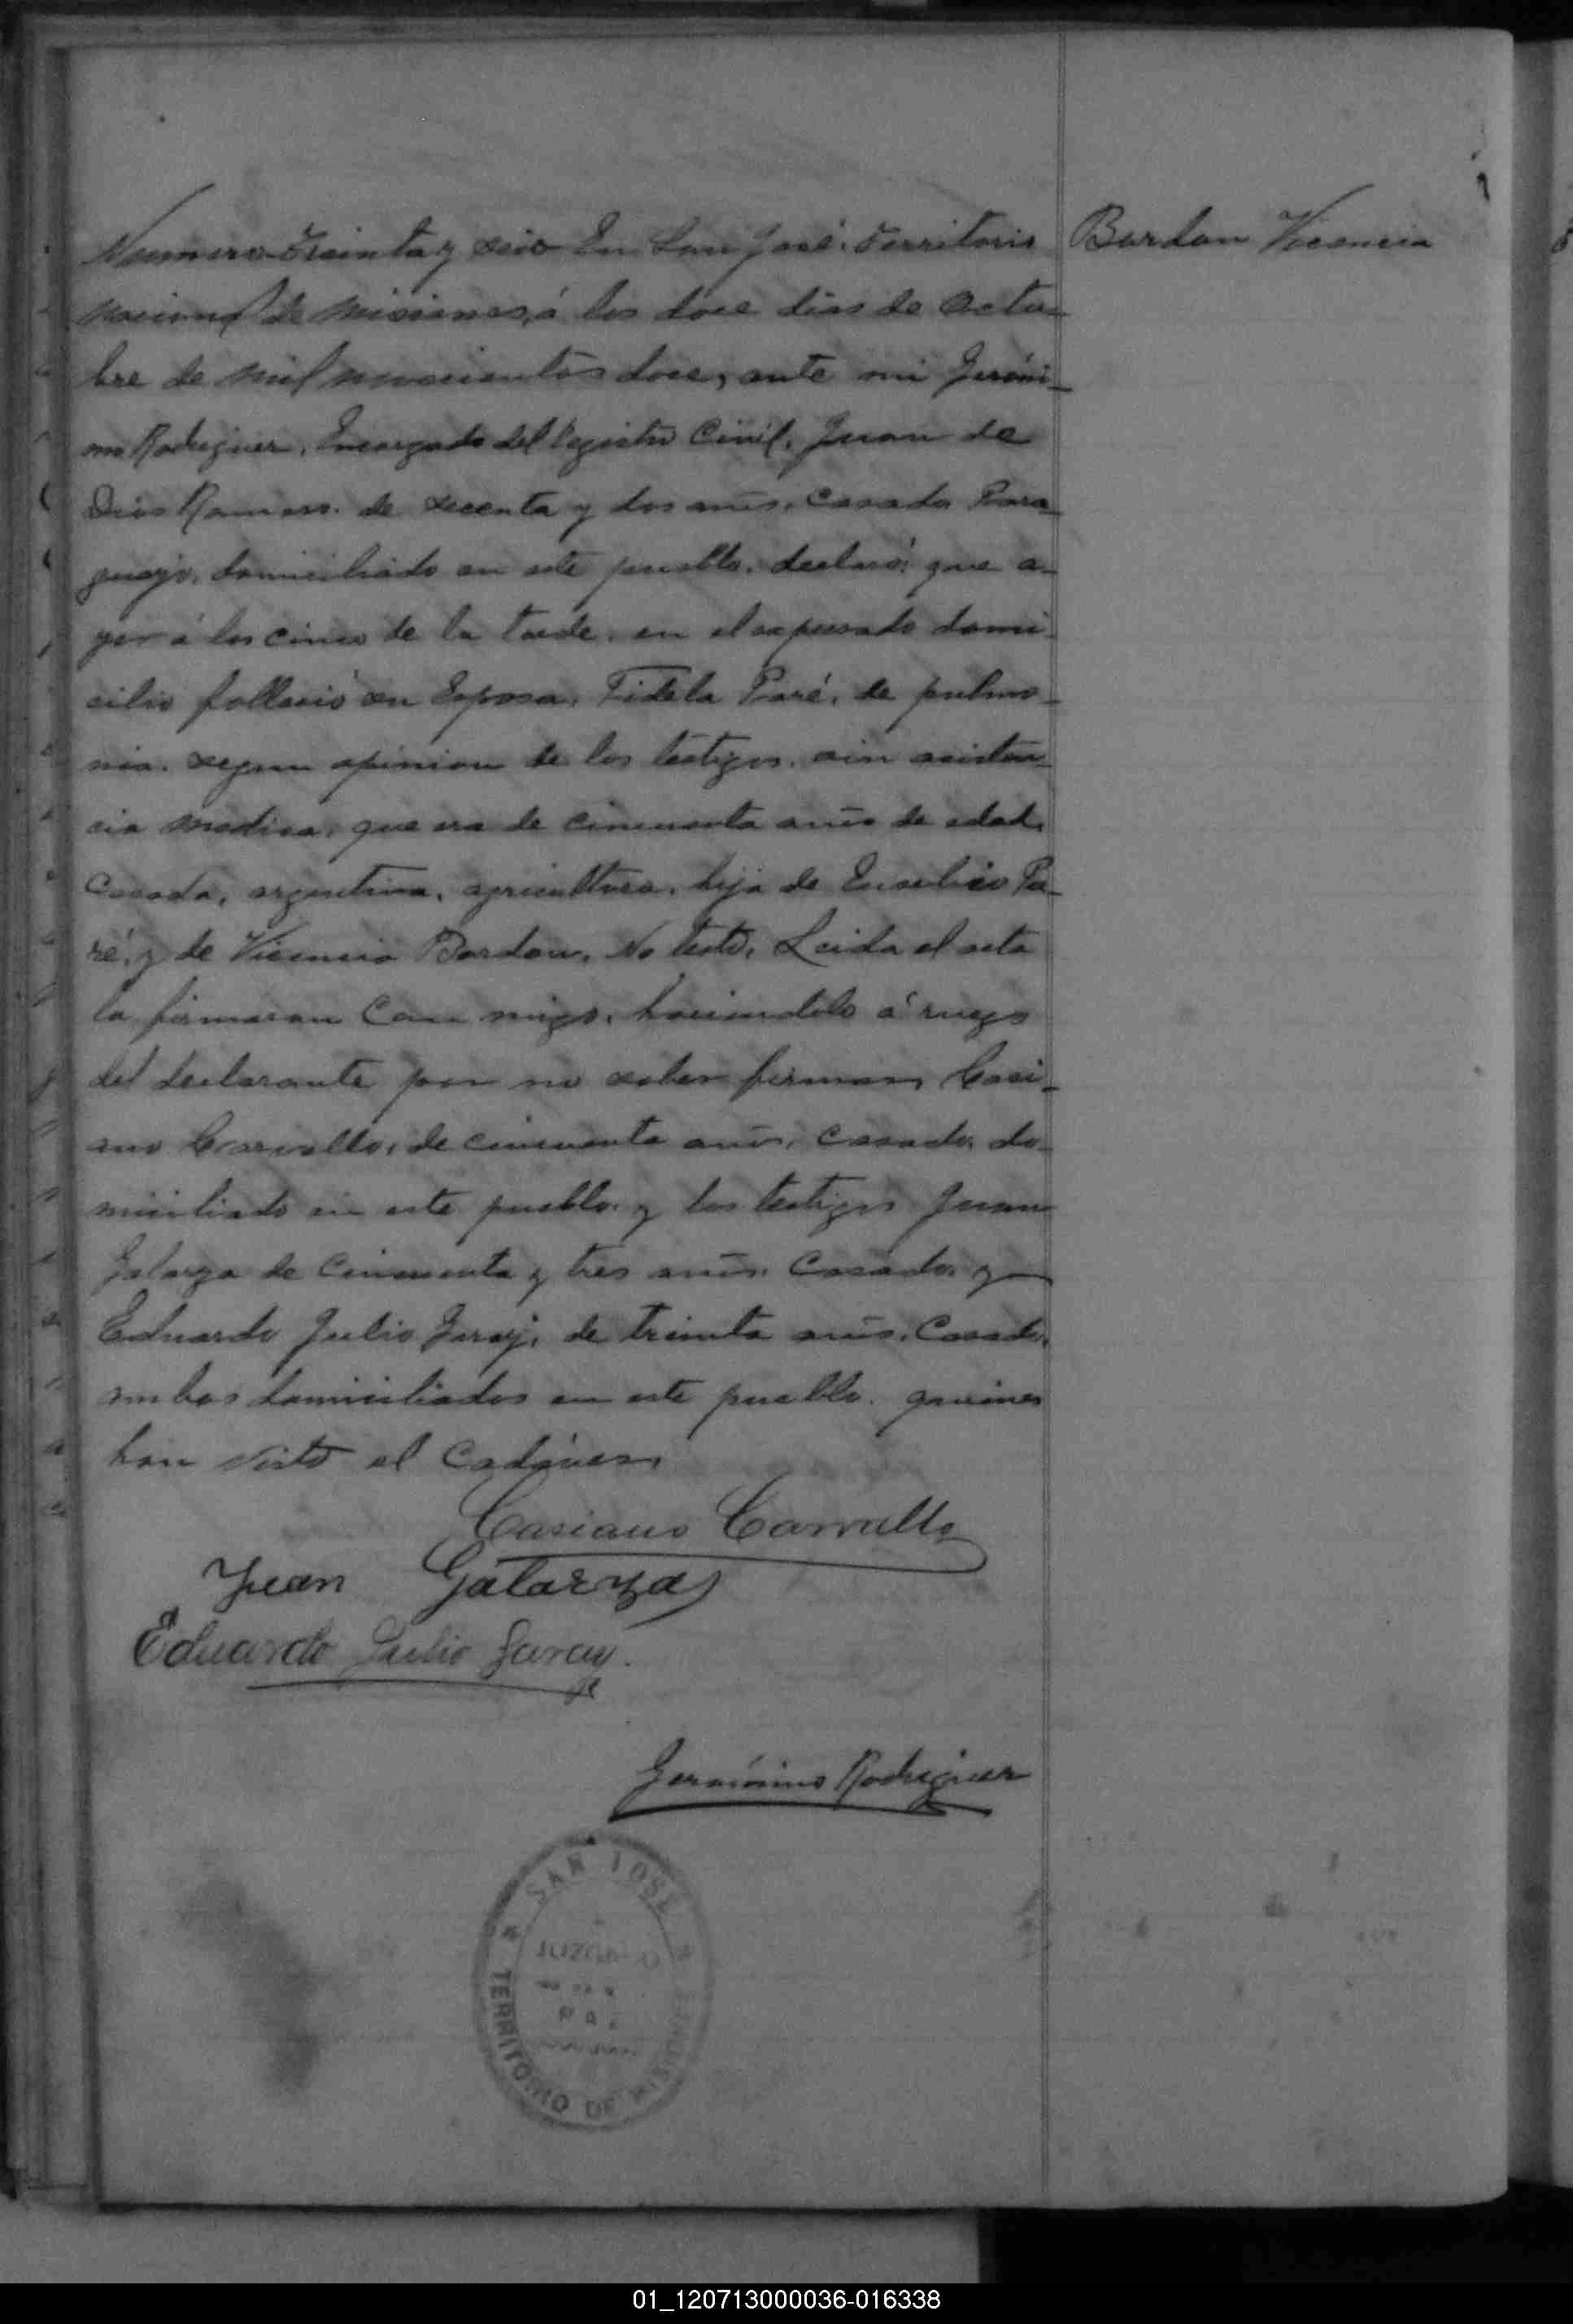 Numero Treinta y seis En San José, Territorio
Bordon Vicencia
Nacional de Misiones, á los doce dias de Octu-
bre de mil novecientos doce, ante mi Geróni-
mo Rodriguez, Encargado del Registro Civil, Juan de
Dios Romero, de secenta y dos anõs, casado Para-
guayo, domiciliado en este pueblo, declaró: que a-
yer á las cinco de la tarde, en el expresado domi-
cilio fallecio su Esposa, Fidela Paré, de pulmo-
nia, segun opinion de los testigos, sin asisten-
cia medica, que era de cincuenta anõs de edad,
Casada, argentina, agricultora, hija de Eusebio Pa-
ré, y de Vicencia Bordon, No testó, Leida el acta
la firmaron Con migo, haciendolo á ruego
del declarante por no saber firmar, Casi-
ano Carvallo, de cincuenta anõs, casado, do-
miciliado en este pueblo, y los testigos Juan
Galarza de Cincuenta y tres anõs, Casado, y
Eduardo Julio Garay, de treinta anõs, Casado,
ambos domiciliados en este pueblo, quienes
han visto el Cadáver,
Casiano Carvallo
Juan Galarza
Eduardo Julio Garay.
Gerónimo Rodriguez
SAN JOSE
JUZGADO
PAZ
TERRITORIO DE MISIONES
01_120713000036-016338